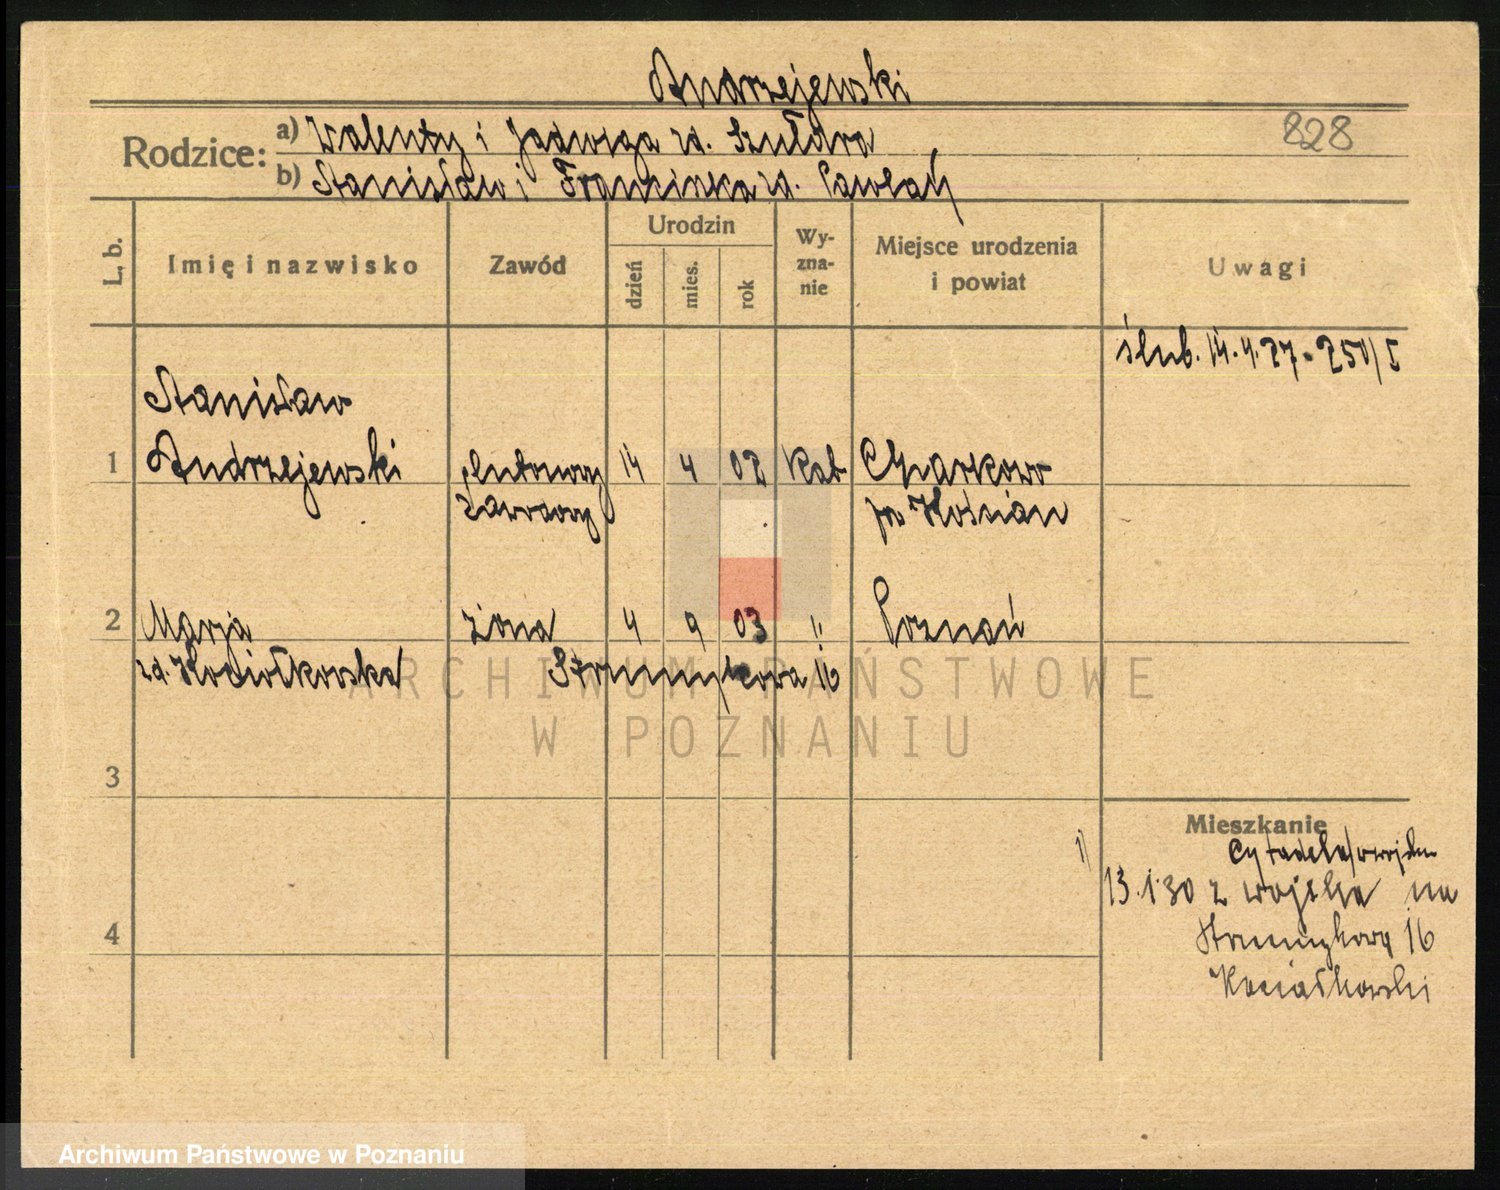 Andrzejewski
828
Rodzice:
a) Walenty i Jadwiga zd. Szułdra
b) Stanisław i Franciszka zd. Pawlak
L. b.
Imię i nazwisko
Zawód
Urodzin
dzień
mies.
rok
Wy-
zna-
nie
Miejsce urodzenia
i powiat
Uwagi
ślub. 14.4.27. 250/5
Stanisław
1 Andrzejewski plutonowy 14 4 02 Kat
zawodowy
pw Kościan
2 Marja żona 4 9 03 " Poznań
zd. Kociołkowska Strumykowa 16
3
4
Mieszkanie
1)
Cytadela
13.1.30 z wojska na
Strumykową 16
Kociałkowski
ARCHIWUM PAŃSTWOWE
W POZNANIU
Archiwum Państwowe w Poznaniu